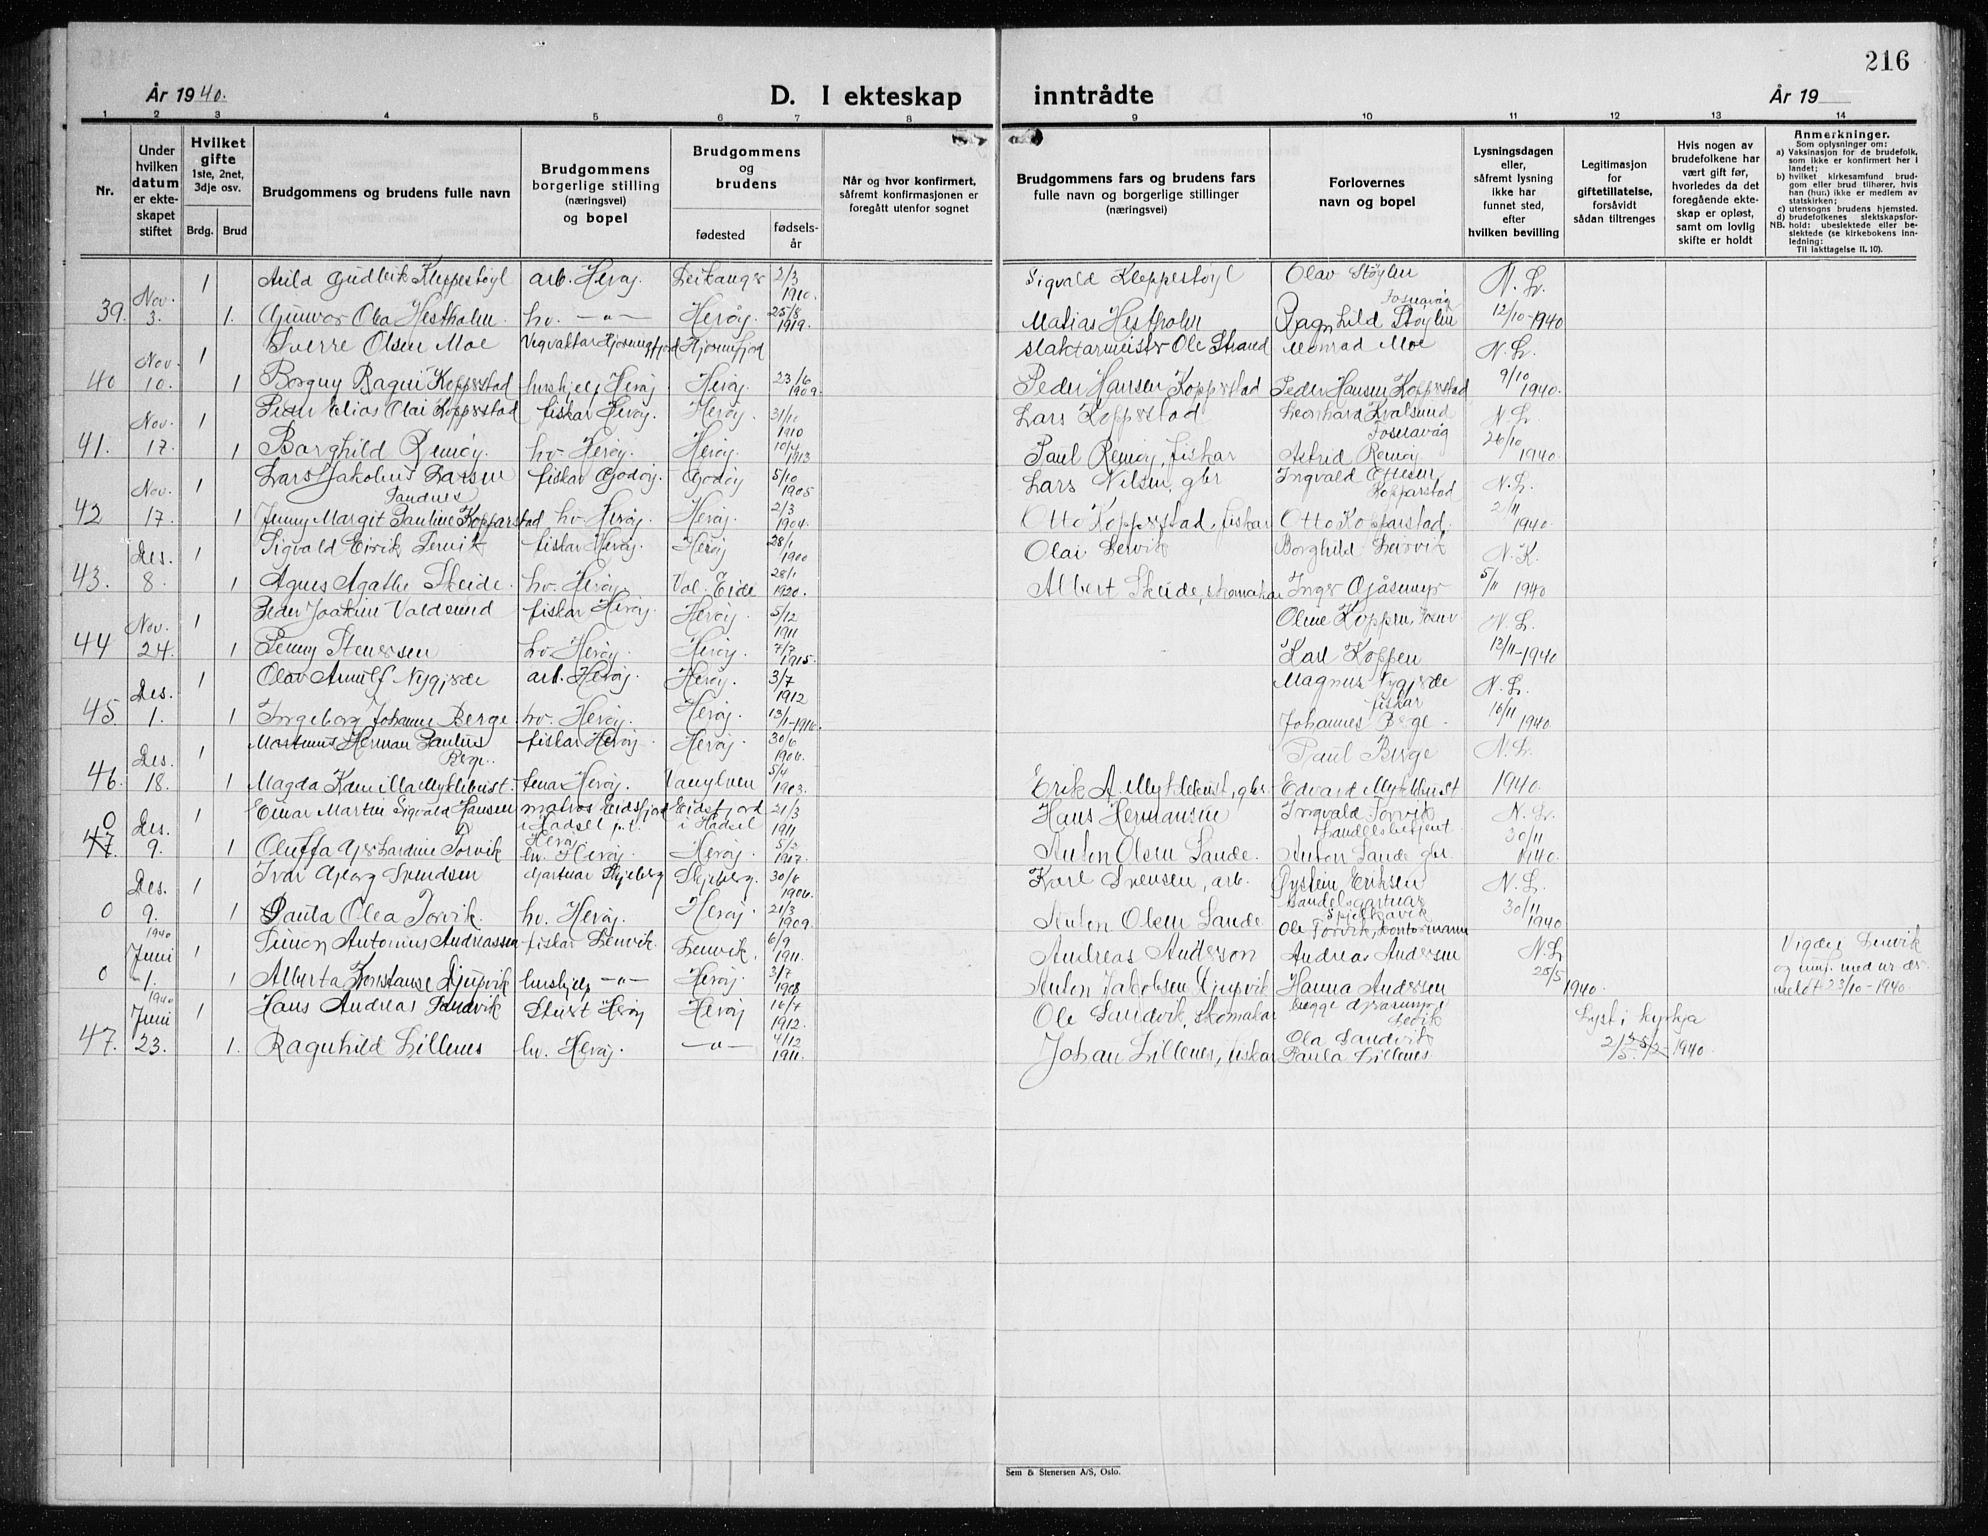 216
År 1940.
D. I ekteskap inntrådte
År 19
1 2 3 4 5 6 7 8 9 10 11 12 13 14
Nr.
Under hvilken datum er ekteskapet stiftet
Hvilket gifte 1ste, 2net, 3dje osv.
Brdg. Brud
Brudgommens og brudens fulle navn
Brudgommens borgerlige stilling (næringsvei) og bopel
Brudgommens og brudens
fødested
fødselsår
Når og hvor konfirmert, såfremt konfirmasjonen er foregått utenfor sognet
Brudgommens fars og brudens fars fulle navn og borgerlige stillinger (næringsvei)
Forlovernes navn og bopel
Lysningsdagen eller, såfremt lysning ikke har funnet sted, efter hvilken bevilling
Legitimasjon for giftetillatelse, forsåvidt sådan tiltrenges
Hvis nogen av brudefolkene har vært gift før, hvorledes da det foregående ekteskap er opløst, samt om lovlig skifte er holdt
Anmerkninger.
Som oplysninger om:
a) Vaksinasjon for de brudefolk, som ikke er konfirmert her i landet;
b) hvilket kirkesamfund brudgom eller brud tilhører, hvis han (hun) ikke er medlem av statskirken;
c) utensogns brudens hjemsted.
d) brudefolkenes slektskapsforhold: ubeslektede eller beslektede (se kirkebokens innledning:
NB.
Til iakttagelse II. 10).
1 Arild Gudleik Kleppestøyl arb. Herøy Leikanger 2/3 1910. Sigvald Kleppestøyl Olav Støylen N. L.
39. Nov. 3. 1. Gunvor Olea Hestholm hv. -"- Herøy 25/8 1919. Matias Hestholm Ragnhild Støylen Fosnavåg 12/10-1940
1 Sverre Olsen Moe Vegvaktar Hjørungfjord Hjørunfjord slaktarmeister Ole Strand Konrad Moe N. L.
40 Nov. 10. 1 Borgny Ragni Kopperstad hushjelp Herøy Herøy. 23/6 1909. Peder Hansen Kopperstad Peder Hansen Kopperstad 9/10 1940.
1 Peder Elias Olai Kopperstad fiskar Herøy. Herøy. 31/10 1910 Lars Kopperstad Leonhard Kvalsund Fosnavåg N. L.
41. Nov. 17. 1 Borghild Remøy hv. Herøy. Herøy. 10/4 1913 Paul Remøy, fiskar Astrid Remøy 26/10 1940.
1 Lars Jakobus Larsen Sandnes fiskar Godøy. Godøy 5/10 1905 Lars Nilsen, gbr Ingvald Ottesen Kopparstad N. L.
42 Nov. 17. 1 Jenny Margit Pauline Kopparstad hv. Herøy. Herøy. 2/3 1904. Otto Kopperstad, fiskar Otto Kopparstad. 2/11 1940.
1 Sigvald Eirik Leivik fiskar Herøy. Herøy 28/1 1900 Olai Leivik Borghild Leirvik N. K.
43. Des. 8. 1 Agnes Agathe Skeide. hv. Herøy. Vol. Eide 28/1 1920. Albert Skeide, skomakar Inger Gjåsunes 5/11 1940
1 Peder Joakim Voldsund fiskar Herøy. Herøy. 5/12 1911 Oline Koppen, Fosnv. N. L.
44 Nov. 24. 1 Jenny Stenersen hv Herøy. Herøy. 7/7 1915. Karl Koppen 12/11-1940
1 Olav Arnulf Nygjerde arb. Herøy. Herøy. 3/7 1912 Magnus Nygjerde fiskar N. L.
45. Des. 1. 1 Ingeborg Johanne Berge hv. Herøy. Herøy. 13/11-1916. Johannes Berge. 16/11 1940.
1 Martinus Herman Paulus Berge. fiskar Herøy. Herøy. 30/6 1906. Paul Berge N. L.
46. Des. 18. 1 Magda Kamilla Myklebust. Herøy. Vanylven 5/4 1903. Erik A. Myklebust, gbr. Edvard Myklebust 1940.
1 Einar Martin Sigvald Hansen matros Eidsfjord i Hadsel p.t. Herøy Eidsfjord i Hadsel 21/3 1911 Hans Hermansen Ingvald Torvik handelsbetjent N. L.
0 47. Des. 9. 1 Oluffa Torvik hv. Herøy. Herøy. 5/2 1907. Anton Olsen Sande. Anton Sande gbr. 30/11 1940.
1 Ivar Georg Svendsen Gartnar Skjeberg Skjeberg. 30/6 1906. Karl Svensen, arb. Øystein Eriksen handelsgartnar Spjelkavik N. L.
0 Des. 9. 1 Paula Olea Torvik. hv. Herøy. Herøy. 21/3 1909. Anton Olsen Sande Ole Torvik, kontormann 30/11 1940
1 Simon Antonius Andreassen fiskar Lenvik. Lenvik. 6/9 1911. Andreas Anderson Andreas Andersen N. L. Vigde Lenvik
0 1940 Juni 1. 1 Alberta Konstanse Djupvik hushjelp -"- Herøy 3/7 1908 Anton Jakobsen Djupvik Hanna Andersen 25/5 1940. meldt 23/10-1940.
1 Hans Andreas Sandvik Stuert Herøy Herøy 16/7 1912. Ole Sandvik, skomakar Lyst i kyrkja
47. 1940 Juni 23. 1. Ragnhild Lillenes hv. Herøy. -"- 4/12 1911. Johan Lillenes, fiskar Ola Sandvik Paula Lillenes 1940.
Sem & Stenersen A/S, Oslo.